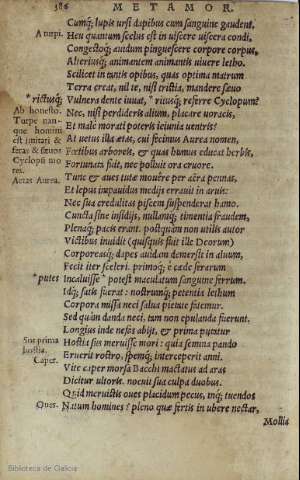 386 METAMOR.
Cumq; lupis ursi dapibus cum sanguine gaudent,
A turpi. Heu quantum scelus est in uiscere uiscera condi,
Congestoq; auidum pinguescere corpore corpus,
Alteriusq; animantem animantis uiuere letho.
Scilicet in tantis opibus, quas optima matrum
Terra creat, nil te, nisi tristia, mandere sæuo
* rictusq; Vulnera dente iuuat, * ritusq; referre Cyclopum?
Ab honesto. Nec, nisi perdideris alium, placare uoracis,
Turpe nanque homini Et male morati poteris ieiunia uentris?
est imitari At uetus illa ætas, cui fecimus Aurea nomen,
feras & sæuos Fœtibus arboreis, & quas humus educat herbis,
Cyclopū mores. Fortunata fuit, nec polluit ora cruore.
Aetas Aurea. Tunc & aues tutæ mouêre per aëra pennas,
Et lepus inpauidus medijs errauit in aruis:
Nec sua credulitas piscem suspenderat hamo.
Cuncta sine insidijs, nullamq; timentia fraudem,
Plenaq; pacis erant. postquàm non utilis autor
Victibus inuidit (quisquis fuit ille Deorum)
Corporeasq; dapes auidam demersit in aluum,
Fecit iter sceleri. primoq; è cæde ferarum
* putes Incaluisse * potest maculatum sanguine ferrum.
Idq; satis fuerat: nostrumq; petentia lethum
Corpora missa neci salua pietate fatemur.
Sed quàm danda neci, tam non epulanda fuerunt.
Longius inde nefas abijt, & prima putatur
Sus prima hostia. Hostia sus meruisse mori: quia semina pando
Caper. Eruerit rostro, spemq; interceperit anni.
Vite caper morsa Bacchi mactatus ad aras
Dicitur ultoris. nocuit sua culpa duobus.
Quid meruistis oues placidum pecus, inq; tuendos
Oues. Natum homines? pleno quæ fertis in ubere nectar,
Mollia
Biblioteca de Galicia